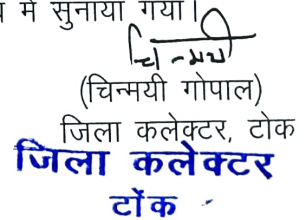 में सुनाया गया।
चिन्मयी
(चिन्मयी गोपाल)
जिला कलेक्टर, टोंक
जिला कलेक्टर
टोंक